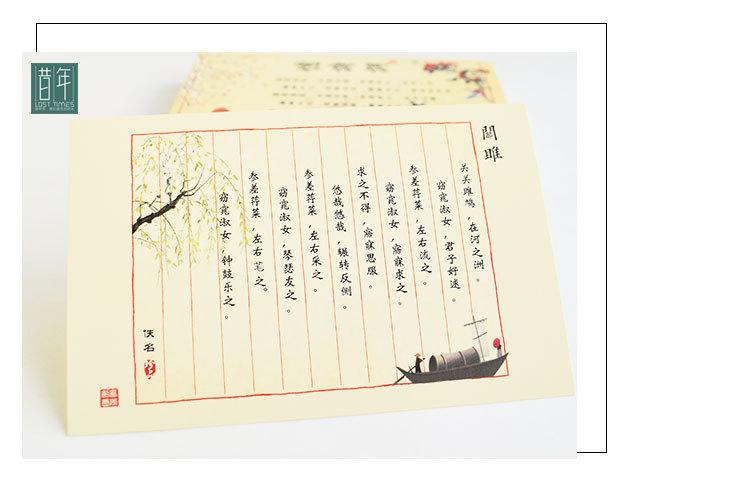 昔年
LOST TIMES
關雎
关关雎鸠，在河之洲。
窈窕淑女，君子好逑。
参差荇菜，左右流之。
窈窕淑女，寤寐求之。
求之不得，寤寐思服。
悠哉悠哉，辗转反侧。
参差荇菜，左右采之。
窈窕淑女，琴瑟友之。
参差荇菜，左右芼之。
窈窕淑女，钟鼓乐之。
佚名